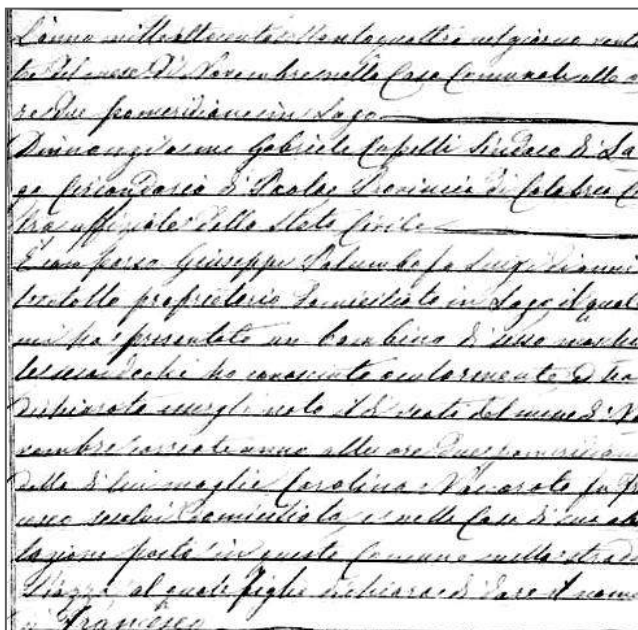 L'anno mille ottocento settantaquattro nel giorno venti
tre del mese di Novembre nella Casa Comunale alle o
re due pomeridiane in Lago
Dinnanzi a me Gabriele Cupelli Sindaco di La
go Circondario di Paola Provincia di Calabria Ci
tra uffiziale dello Stato Civile
È comparso Giuseppe Palumbo fu Luigi di anni
proprietario domiciliato in Lago il qual
mi ha presentato un bambino di sesso maschi
le secondo che ho conosciuto ed ha
dichiarato essergli nato il dì del mese di No
vembre corrente anno alle ore due pomeridiane
dalla di lui moglie Carolina fu
domiciliata e nella Casa di sua abi
tazione posta in questo Comune nella strada
Piazza al quale figlio dichiara di dare il nome
di Francesco